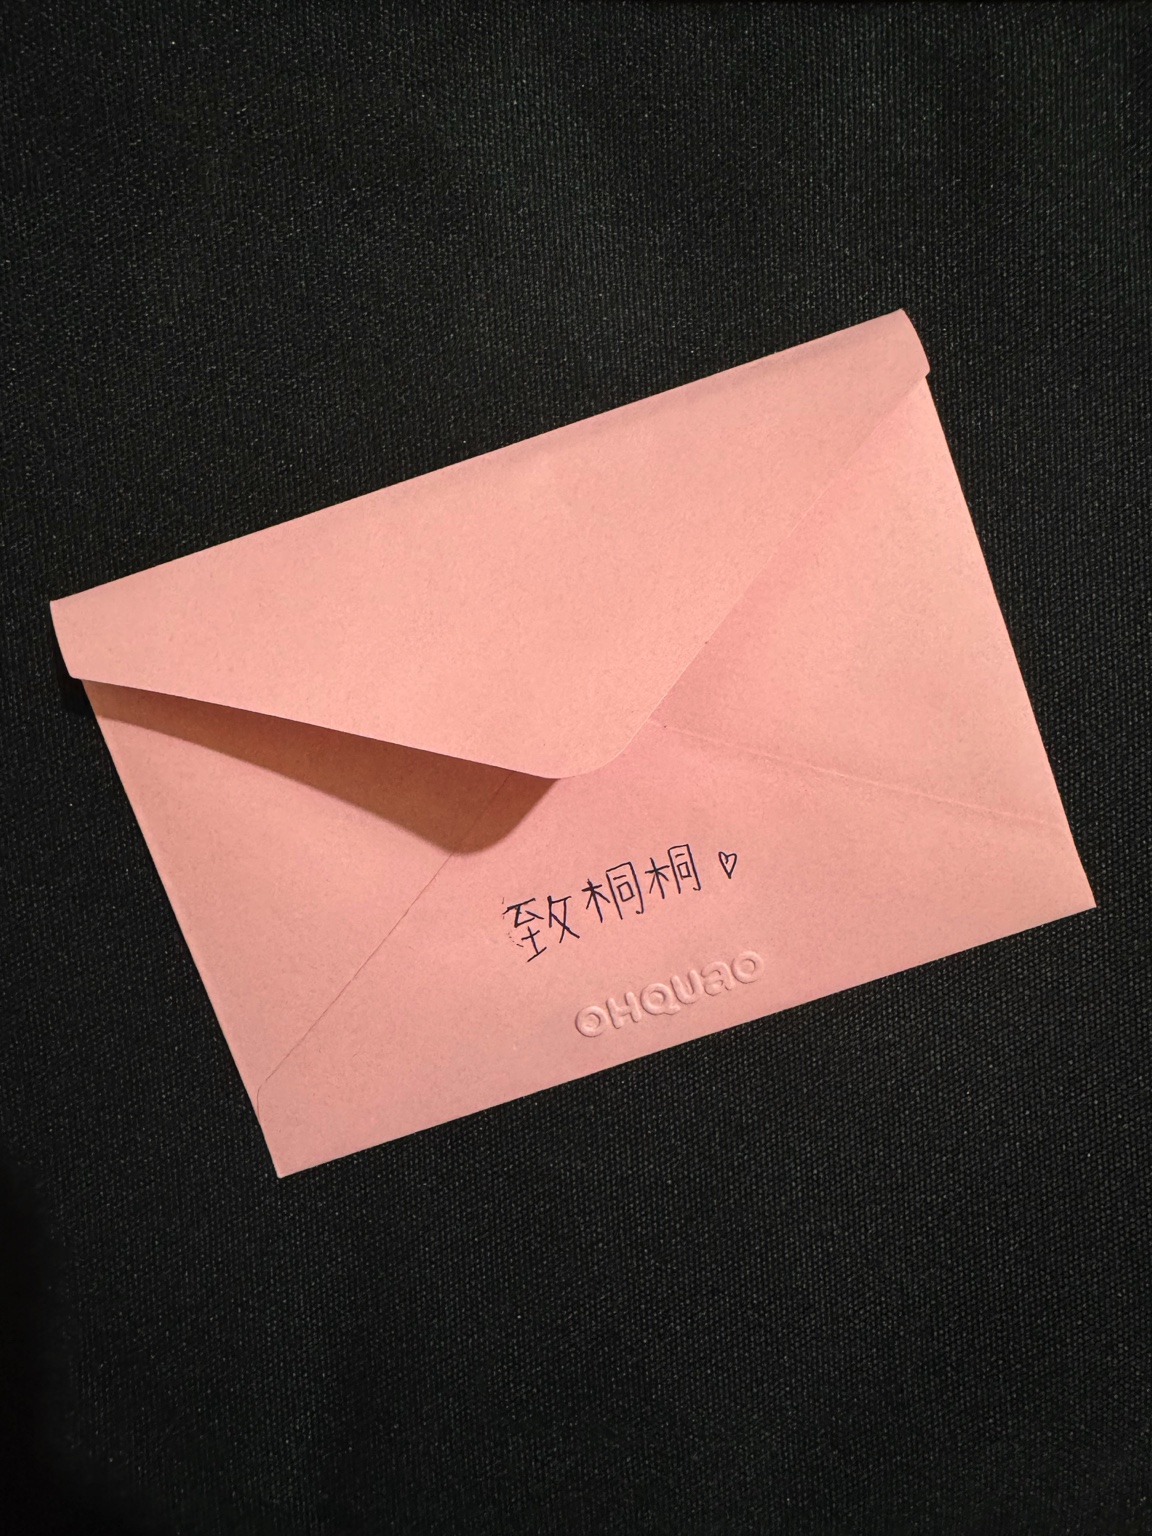 致桐桐♡
OHQUaO